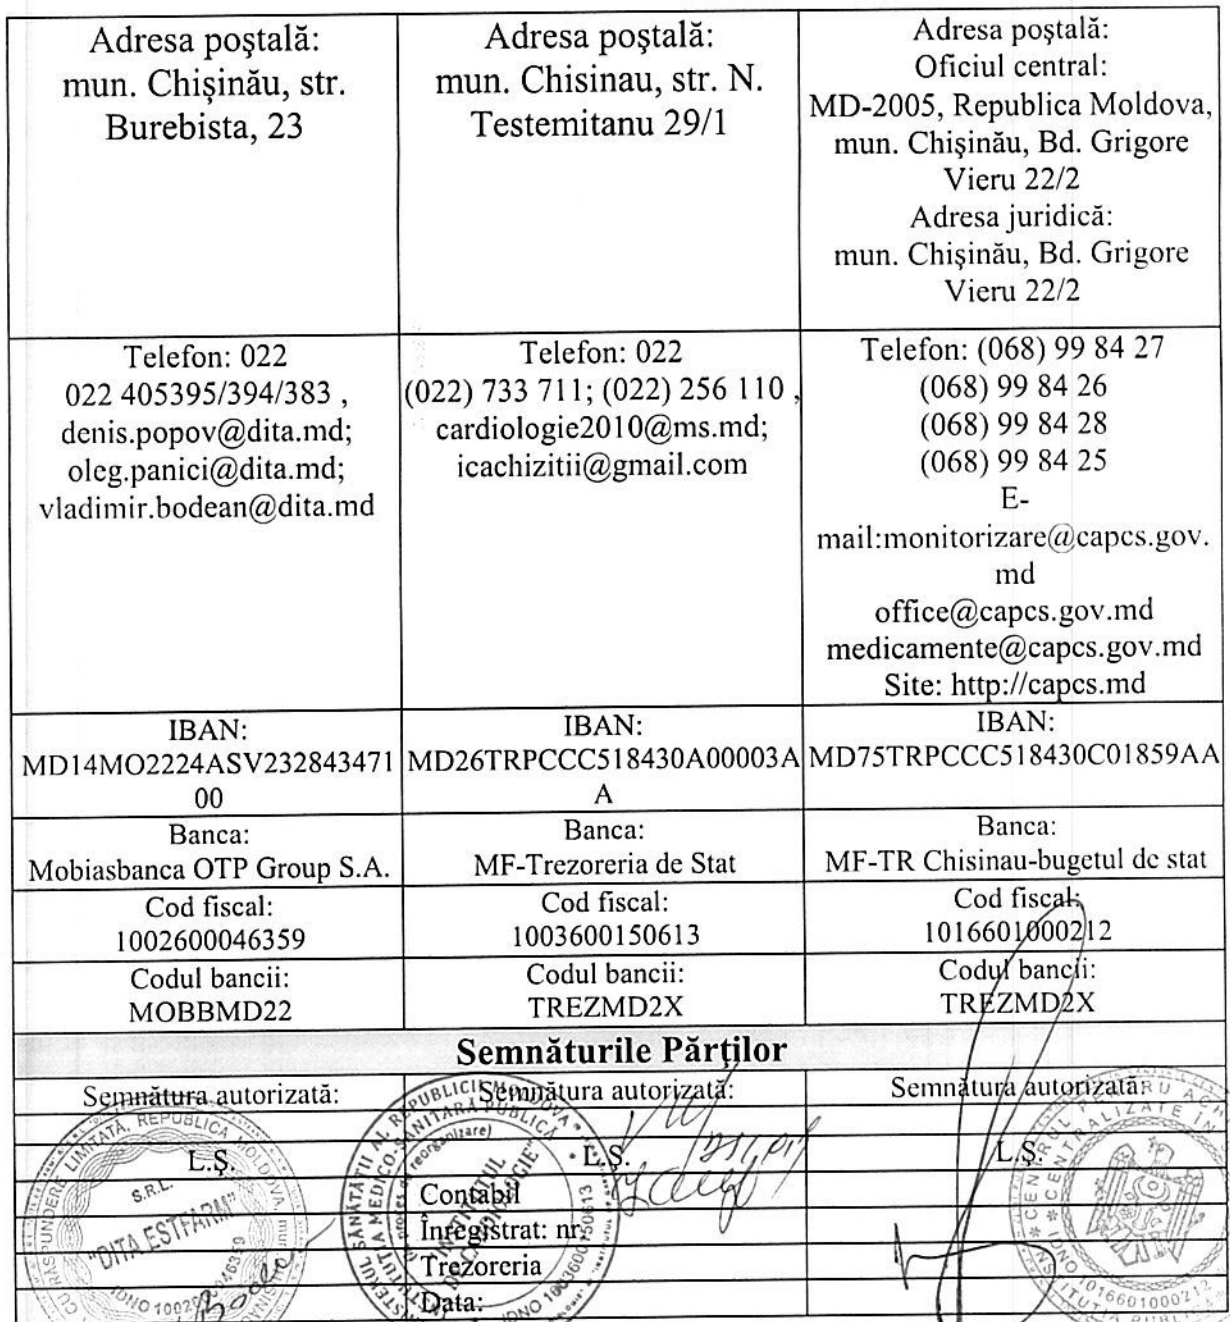 Adresa poştală:
mun. Chişinău, str.
Burebista, 23
Adresa poştală:
mun. Chisinau, str. N.
Testemitanu 29/1
Adresa poştală:
Oficiul central:
MD-2005, Republica Moldova,
mun. Chişinău, Bd. Grigore
Vieru 22/2
Adresa juridică:
mun. Chişinău, Bd. Grigore
Vieru 22/2
Telefon: 022
022 405395/394/383 ,
denis.popov@dita.md;
oleg.panici@dita.md;
vladimir.bodean@dita.md
Telefon: 022
(022) 733 711; (022) 256 110 ,
cardiologie2010@ms.md;
icachizitii@gmail.com
Telefon: (068) 99 84 27
(068) 99 84 26
(068) 99 84 28
(068) 99 84 25
E-
mail:monitorizare@capcs.gov.
md
office@capcs.gov.md
medicamente@capcs.gov.md
Site: http://capcs.md
IBAN:
MD14MO2224ASV232843471
00
IBAN:
MD26TRPCCC518430A00003A
A
IBAN:
MD75TRPCCC518430C01859AA
Banca:
Mobiasbanca OTP Group S.A.
Banca:
MF-Trezoreria de Stat
Banca:
MF-TR Chisinau-bugetul de stat
Cod fiscal:
1002600046359
Cod fiscal:
1003600150613
Cod fiscal:
1016601000212
Codul bancii:
MOBBMD22
Codul bancii:
TREZMD2X
Codul bancii:
TREZMD2X
Semnăturile Părţilor
Semnătura autorizată:
Semnătura autorizată:
Semnătura autorizată:
L.Ş.
L.Ş.
L.Ş.
Contabil
Înregistrat: nr
Trezoreria
Data:
REPUBLICA MOLDOVA
S.R.L.
"DITA ESTFARM"
REPUBLICII MOLDOVA
MEDICO-SANITARĂ PUBLICĂ
"INSTITUTUL
DE CARDIOLOGIE"
IDNO 1003600150613
CENTRUL PENTRU
CENTRALIZATE ÎN
IDNO 1016601000212